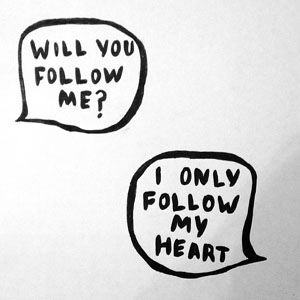 WILL YOU
FOLLOW
ME?
I ONLY
FOLLOW
MY
HEART